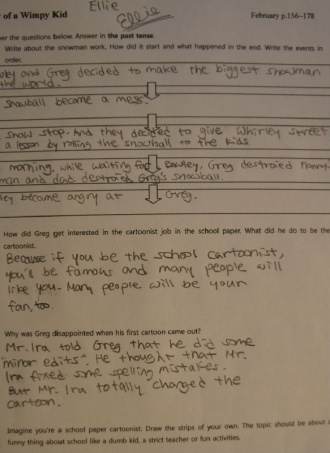 Ellie
of a Wimpy Kid Ellie February p.156–178
er the questions below. Answer in the past tense.
Write about the snowman work. How did it start and what happened in the end. Write the events in
order.
and Greg decided to make the biggest snowman
the world.
Snowball became a mess.
snow stop. And they decided to give Whirley Street
a lesson by rolling the snowball to the kids
morning, while waiting for Rowley, Greg destroied
man and dad destroied Greg's snowball.
ley became angry at Greg.
How did Greg get interested in the cartoonist job in the school paper. What did he do to be the
cartoonist.
Because if you be the school cartoonist,
you'll be famous and many people will
like you. Many people will be your
fan, too.
Why was Greg disappointed when his first cartoon came out?
Mr. Ira told Greg that he did some
"minor edits". He thought that Mr.
Ira fixed some spelling mistakes.
But Mr. Ira totally changed the
cartoon.
Imagine you're a school paper cartoonist. Draw the strips of your own. The topic should be about
funny thing about school like a dumb kid, a strict teacher or fun activities.